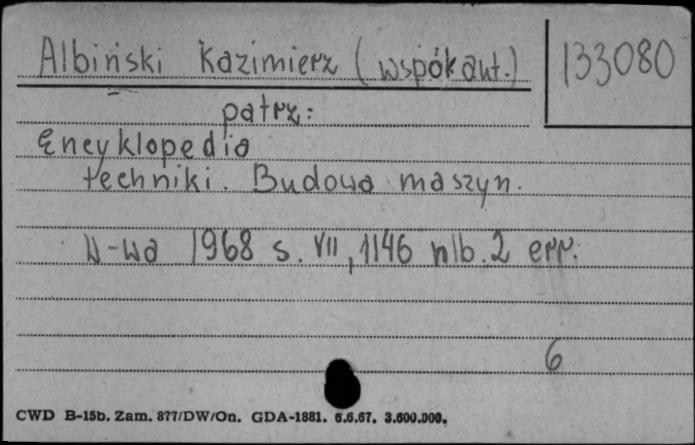 Albiński Kazimierz (współaut.) 133080
patrz:
Encyklopedia
techniki. Budowa maszyn.
W-wa 1968 s. VII, 1146 nlb. 2 err.
6
CWD B-15b. Zam. 877/DW/On. GDA-1881. 6.6.67. 3.600.000.